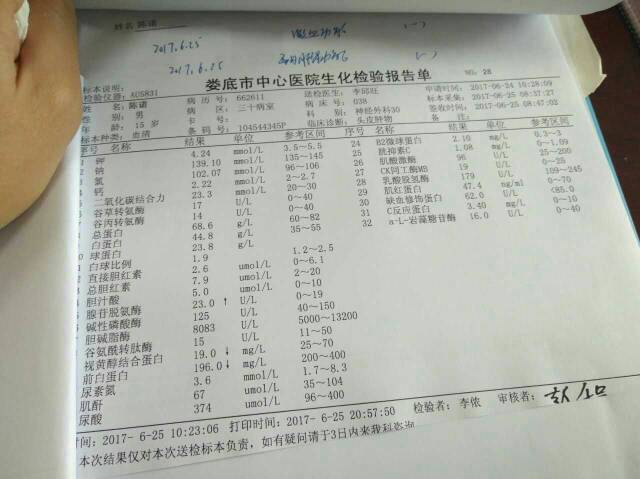 姓名 陈诺
2017.6.25
2017.6.25
娄底市中心医院生化检验报告单
标本说明:
NO: 28
检验仪器: AU5831 病历号: 662611 送检医生: 李邱旺 申请时间: 2017-06-24 10:28:09
姓名: 陈诺 病区: 三十病室 病床号: 038 标本采集: 2017-06-25 08:37:27
性别: 男 卡号: 科别: 神经外科30 签收时间: 2017-06-25 08:47:02
年龄: 15 岁 临床诊断: 头皮肿物 备注:
标本种类: 血清 条码号: 104544345P
序号 名称 结果 单位 参考区间 序号 名称 结果 单位 参考区间
钾 4.24 mmol/L 3.5~5.5
钠 139.10 mmol/L 135~145
氯 102.07 mmol/L 96~106
钙 2.22 mmol/L 2~2.7
二氧化碳结合力 23.3 mmol/L 20~30
谷草转氨酶 17 U/L 0~40
谷丙转氨酶 14 U/L 0~40
总蛋白 68.6 g/L 60~82
白蛋白 44.8 g/L 35~55
球蛋白 23.8 g/L
白球比例 1.9 1.2~2.5
直接胆红素 2.6 umol/L 0~6.1
总胆红素 7.9 umol/L 2~20
胆汁酸 5.0 umol/L 0~10
腺苷脱氨酶 23.0 ↑ U/L 0~19
碱性磷酸酶 125 U/L 40~150
胆碱脂酶 8083 U/L 5000~13200
谷氨酰转肽酶 15 U/L 11~50
视黄醇结合蛋白 19.0 ↓ mg/L 25~70
前白蛋白 196.0 ↓ mg/L 200~400
尿素氮 3.6 mmol/L 1.7~8.3
肌酐 67 umol/L 35~104
尿酸 374 umol/L 96~400
24 B2微球蛋白 2.10 mg/L 0.3~3
25 胱抑素C 1.08 mg/L 0~1.09
26 肌酸激酶 96 U/L 25~200
27 CK同工酶MB 19 U/L 0~25
28 乳酸脱氢酶 179 U/L 109~245
29 肌红蛋白 47.4 ng/ml 0~70
30 缺血修饰蛋白 62.0 U/L <85.0
31 C反应蛋白 3.40 mg/L 0~10
32 a-L-岩藻糖苷酶 16.0 U/L 0~40
时间: 2017- 6-25 10:23:06 打印时间: 2017- 6-25 20:57:50 检验者: 李侬 审核者:
本次结果仅对本次送检标本负责, 如有疑问请于3日内来我科咨询